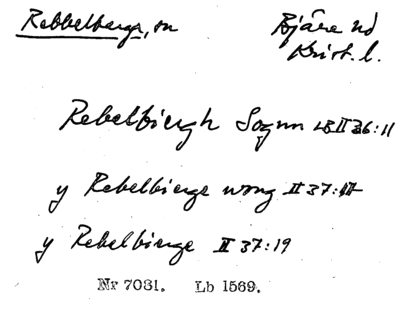 Rebbelberga, sn Bjäre hd
Krist. l.
Rebelbiergh Sognn LB II 36:11
y Rebelbierge wong II 37:17
y Rebelbierge II 37:19
Nr 7031. Lb 1569.